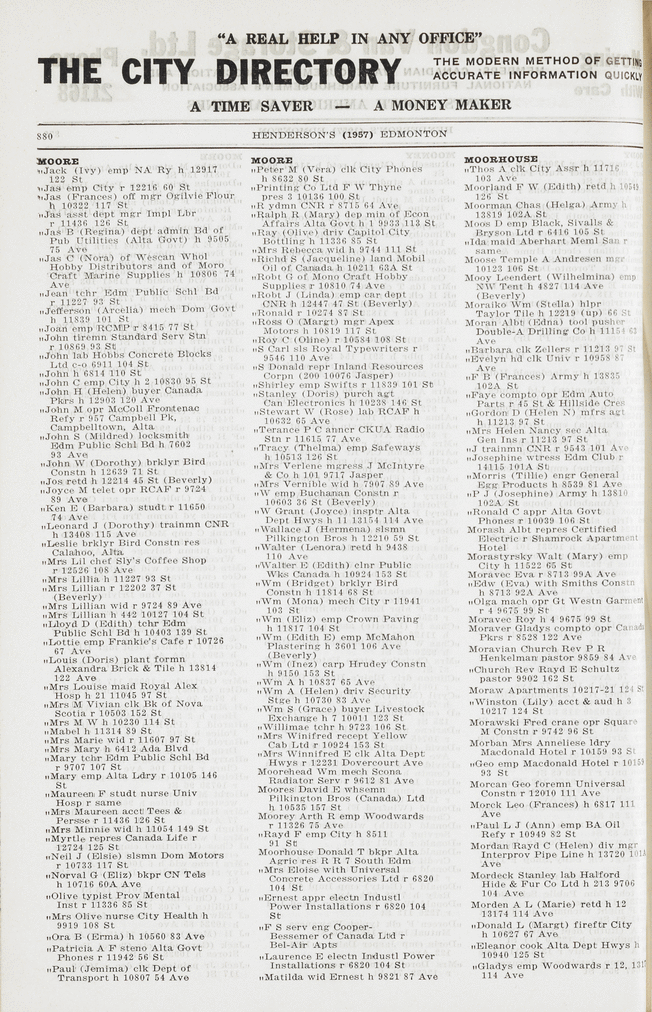 "A REAL HELP IN ANY OFFICE"
THE CITY DIRECTORY
THE MODERN METHOD OF GETTING
ACCURATE INFORMATION QUICKLY
A TIME SAVER — A MONEY MAKER
880
HENDERSON'S (1957) EDMONTON
MOORE
"Jack (Ivy) emp NA Ry h 12917
122 St
"Jas emp City r 12216 60 St
"Jas (Frances) off mgr Ogilvie Flour
h 10322 117 St
"Jas asst dept mgr Impl Lbr
r 11436 126 St
"Jas B (Regina) dept admin Bd of
Pub Utilities (Alta Govt) h 9505
75 Ave
"Jas C (Nora) of Wescan Whol
Hobby Distributors and of Moro
Craft Marine Supplies h 10806 74
Ave
"Jean tchr Edm Public Schl Bd
r 11227 93 St
"Jefferson (Arcelia) mech Dom Govt
h 11839 101 St
"Joan emp RCMP r 8415 77 St
"John tiremn Standard Serv Stn
r 10869 93 St
"John lab Hobbs Concrete Blocks
Ltd c-o 6911 104 St
"John h 6814 110 St
"John C emp City h 2 10830 95 St
"John H (Helen) buyer Canada
Pkrs h 12903 120 Ave
"John M opr McColl Frontenac
Refy r 957 Campbell Pk,
Campbelltown, Alta
"John S (Mildred) locksmith
Edm Public Schl Bd h 7602
93 Ave
"John W (Dorothy) brklyr Bird
Constn h 12639 71 St
"Jos retd h 12214 45 St (Beverly)
"Joyce M telet opr RCAF r 9724
89 Ave
"Ken E (Barbara) studt r 11650
74 Ave
"Leonard J (Dorothy) trainmn CNR
h 13408 115 Ave
"Leslie brklyr Bird Constn res
Calahoo, Alta
"Mrs Lil chef Sly's Coffee Shop
r 12526 108 Ave
"Mrs Lillia h 11227 93 St
"Mrs Lillian r 12202 37 St
(Beverly)
"Mrs Lillian wid r 9724 89 Ave
"Mrs Lillian h 442 10127 104 St
"Lloyd D (Edith) tchr Edm
Public Schl Bd h 10403 139 St
"Lottie emp Frankie's Cafe r 10726
67 Ave
"Louis (Doris) plant formn
Alexandra Brick & Tile h 13814
122 Ave
"Mrs Louise maid Royal Alex
Hosp h 21 11045 97 St
"Mrs M Vivian clk Bk of Nova
Scotia r 10503 152 St
"Mrs M W h 10230 114 St
"Mabel h 11314 89 St
"Mrs Marie wid r 11607 97 St
"Mrs Mary h 6412 Ada Blvd
"Mary tchr Edm Public Schl Bd
r 9707 107 St
"Mary emp Alta Ldry r 10105 146
St
"Maureen F studt nurse Univ
Hosp r same
"Mrs Maureen acct Tees &
Persse r 11436 126 St
"Mrs Minnie wid h 11054 149 St
"Myrtle repres Canada Life r
12724 125 St
"Neil J (Elsie) slsmn Dom Motors
r 10733 117 St
"Norval G (Eliz) bkpr CN Tels
h 10716 60A Ave
"Olive typist Prov Mental
Inst r 11336 85 St
"Mrs Olive nurse City Health h
9919 108 St
"Ora B (Erma) h 10560 83 Ave
"Patricia A F steno Alta Govt
Phones r 11942 56 St
"Paul (Jemima) clk Dept of
Transport h 10807 54 Ave
MOORE
"Peter M (Vera) clk City Phones
h 8632 80 St
"Printing Co Ltd F W Thyne
pres 3 10136 100 St
"R ydmn CNR r 8715 64 Ave
"Ralph R (Mary) dep min of Econ
Affairs Alta Govt h 1 9933 113 St
"Ray (Olive) driv Capitol City
Bottling h 11336 85 St
"Mrs Rebecca wid h 9744 111 St
"Richd S (Jacqueline) land Mobil
Oil of Canada h 10211 63A St
"Robt G of Mono Craft Hobby
Supplies r 10810 74 Ave
"Robt J (Linda) emp car dept
CNR h 12447 47 St (Beverly)
"Ronald r 10274 87 St
"Ross O (Margt) mgr Apex
Motors h 10819 117 St
"Roy C (Oline) r 10584 108 St
"S Carl sls Royal Typewriters r
9546 110 Ave
"S Donald repr Inland Resources
Corpn (200 10076 Jasper)
"Shirley emp Swifts r 11839 101 St
"Stanley (Doris) purch agt
Can Electronics h 10238 146 St
"Stewart W (Rose) lab RCAF h
10632 65 Ave
"Terance P C anncr CKUA Radio
Stn r 11615 77 Ave
"Tracy (Thelma) emp Safeways
h 10513 126 St
"Mrs Verlene mgress J McIntyre
& Co h 101 9717 Jasper
"Mrs Vernible wid h 7907 89 Ave
"W emp Buchanan Constn r
10603 36 St (Beverly)
"W Grant (Joyce) insptr Alta
Dept Hwys h 11 13154 114 Ave
"Wallace J (Hermena) slsmn
Pilkington Bros h 12210 59 St
"Walter (Lenora) retd h 9438
110 Ave
"Walter E (Edith) clnr Public
Wks Canada h 10924 153 St
"Wm (Bridget) brklyr Bird
Constn h 11814 68 St
"Wm (Mona) mech City r 11941
103 St
"Wm (Eliz) emp Crown Paving
h 11817 104 St
"Wm (Edith E) emp McMahon
Plastering h 3601 106 Ave
(Beverly)
"Wm (Inez) carp Hrudey Constn
h 9150 153 St
"Wm A h 10837 65 Ave
"Wm A (Helen) driv Security
Stge h 10730 83 Ave
"Wm S (Grace) buyer Livestock
Exchange h 7 10011 123 St
"Willimae tchr h 9723 106 St
"Mrs Winifred recept Yellow
Cab Ltd r 10924 153 St
"Mrs Winnifred E clk Alta Dept
Hwys r 12231 Dovercourt Ave
Moorehead Wm mech Scona
Radiator Serv r 9612 81 Ave
Moores David E whsemn
Pilkington Bros (Canada) Ltd
h 10535 157 St
Moorey Arth R emp Woodwards
r 11326 75 Ave
"Rayd F emp City h 8511
91 St
Moorhouse Donald T bkpr Alta
Agric res R R 7 South Edm
"Mrs Eloise with Universal
Concrete Accessories Ltd r 6820
104 St
"Ernest appr electn Industl
Power Installations r 6820 104
St
"F S serv eng Cooper-
Bessemer of Canada Ltd r
Bel-Air Apts
"Laurence E electn Industl Power
Installations r 6820 104 St
"Matilda wid Ernest h 9821 87 Ave
MOORHOUSE
"Thos A clk City Assr h 11716
103 Ave
Moorland F W (Edith) retd h 10549
126 St
Moorman Chas (Helga) Army h
13819 102A St
Moos D emp Black, Sivalls &
Bryson Ltd r 6416 105 St
"Ida maid Aberhart Meml San r
same
Moose Temple A Andresen mgr
10123 106 St
Mooy Leendert (Wilhelmina) emp
NW Tent h 4827 114 Ave
(Beverly)
Moraiko Wm (Stella) hlpr
Taylor Tile h 12219 (up) 66 St
Moran Albt (Edna) tool pusher
Double-A Drilling Co h 11154 63
Ave
"Barbara clk Zellers r 11213 97 St
"Evelyn hd clk Univ r 10958 87
Ave
"F B (Frances) Army h 13835
102A St
"Faye compto opr Edm Auto
Parts r 45 St & Hillside Cres
"Gordon D (Helen N) mfrs agt
h 11213 97 St
"Mrs Helen Nancy sec Alta
Gen Ins r 11213 97 St
"J trainmn CNR r 9543 101 Ave
"Josephine wtress Edm Club r
14115 101A St
"Morris (Tillie) engr General
Egg Products h 8539 81 Ave
"P J (Josephine) Army h 13810
102A St
"Ronald C appr Alta Govt
Phones r 10039 106 St
Morash Albt repres Certified
Electric r Shamrock Apartment
Hotel
Morastyrsky Walt (Mary) emp
City h 11522 65 St
Moravec Eva r 8713 99A Ave
"Edw (Eva) with Smiths Constn
h 8713 92A Ave
"Olga mach opr Gt Westn Garment
r 4 9675 99 St
Moravec Roy h 4 9675 99 St
Moraver Gladys compto opr Canada
Pkrs r 8528 122 Ave
Moravian Church Rev P R
Henkelman pastor 9859 84 Ave
"Church Rev Rayd E Schultz
pastor 9902 162 St
Moraw Apartments 10217-21 124 St
"Winston (Lily) acct & aud h 3
10217 124 St
Morawski Fred crane opr Square
M Constn r 9742 96 St
Morban Mrs Anneliese ldry
Macdonald Hotel r 10159 93 St
"Geo emp Macdonald Hotel r 10159
93 St
Morcan Geo foremn Universal
Constn r 12010 111 Ave
Morck Leo (Frances) h 6817 111
Ave
"Paul L J (Ann) emp BA Oil
Refy r 10949 82 St
Mordan Rayd C (Helen) div mgr
Interprov Pipe Line h 13720
Ave
Mordeck Stanley lab Halford
Hide & Fur Co Ltd h 213 9706
104 Ave
Morden A L (Marie) retd h 12
13174 114 Ave
"Donald L (Margt) fireftr City
h 10627 67 Ave
"Eleanor cook Alta Dept Hwys h
10940 125 St
"Gladys emp Woodwards r 12,
114 Ave